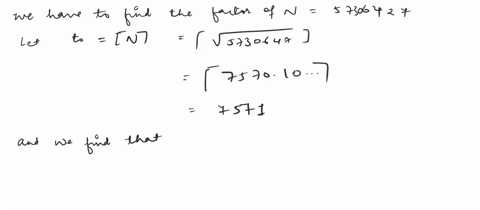 we have to find the factor of N = 57306427
Let to = ⌈N⌉ = ⌈√5730647⌉
= ⌈7570.10...⌉
= 7571
and we find that